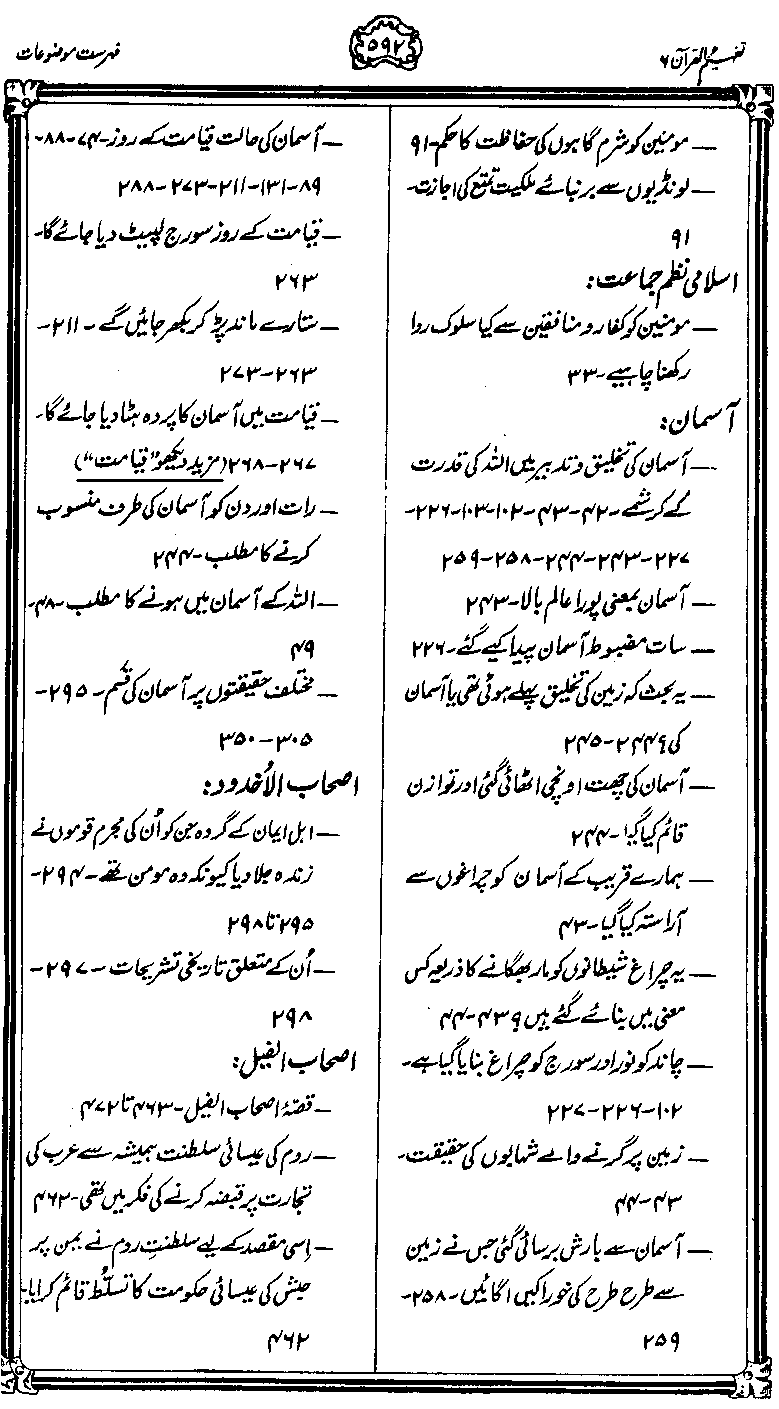 تفہیم القرآن ۶
۵۹۲
فہرست موضوعات
— مومنین کو شرم گاہوں کی حفاظت کا حکم-۹۱
— لونڈیوں سے بر بنائے ملکیت تمتع کی اجازت-
۹۱
اسلامی نظم جماعت:
— مومنین کو کفار و منافقین سے کیا سلوک روا
رکھنا چاہیے-۳۳
آسمان:
— آسمان کی تخلیق و تدبیر میں اللہ کی قدرت
کے کرشمے-۴۲-۴۳-۱۰۲-۱۰۳-۲۲۶-
۲۲۷-۲۴۳-۲۴۴-۲۵۸-۲۵۹
— آسمان بمعنی پورا عالم بالا-۲۴۳
— سات مضبوط آسمان پیدا کیے گئے-۲۲۶
— یہ بحث کہ زمین کی تخلیق پہلے ہوئی تھی یا آسمان
کی؟ ۲۴۴-۲۴۵
— آسمان کی چھت اونچی اٹھائی گئی اور توازن
قائم کیا گیا-۲۴۴
— ہمارے قریب کے آسمان کو چراغوں سے
آراستہ کیا گیا-۴۳
— یہ چراغ شیطانوں کو مار بھگانے کا ذریعہ کس
معنی میں بنائے گئے ہیں؟ ۴۳-۴۴
— چاند کو نور اور سورج کو چراغ بنایا گیا ہے-
۱۰۲-۲۲۶-۲۲۷
— زمین پر گرنے والے شہابوں کی حقیقت-
۴۳-۴۴
— آسمان سے بارش برسائی گئی جس نے زمین
سے طرح طرح کی خوراکیں اگائیں-۲۵۸-
۲۵۹
— آسمان کی حالت قیامت کے روز-۷۴-۸۸-
۸۹-۱۳۱-۲۱۱-۲۷۳-۲۸۸
— قیامت کے روز سورج لپیٹ دیا جائے گا-
۲۶۳
— ستارے ماند پڑ کر بکھر جائیں گے-۲۱۱-
۲۶۳-۲۷۳
— قیامت میں آسمان کا پردہ ہٹا دیا جائے گا-
۲۶۷-۲۶۸ (مزید دیکھو "قیامت")
— رات اور دن کو آسمان کی طرف منسوب
کرنے کا مطلب-۲۴۴
— اللہ کے آسمان میں ہونے کا مطلب-۴۸-
۴۹
— مختلف حقیقتوں پر آسمان کی قسم-۲۹۵-
۳۰۵-۳۵۰
اصحاب الاُخدود:
— اہل ایمان کے گروہ جن کو اُن کی مجرم قوموں نے
زندہ جلا دیا کیونکہ وہ مومن تھے-۲۹۴-
۲۹۵ تا ۲۹۸
— اُن کے متعلق تاریخی تشریحات-۲۹۷-
۲۹۸
اصحاب الفیل:
— قصۂ اصحاب الفیل-۴۶۳ تا ۴۷۲
— روم کی عیسائی سلطنت ہمیشہ سے عرب کی
تجارت پر قبضہ کرنے کی فکر میں تھی-۴۶۲
— اِسی مقصد کے لیے سلطنتِ روم نے یمن پر
حبش کی عیسائی حکومت کا تسلُّط قائم کرایا-
۴۶۲